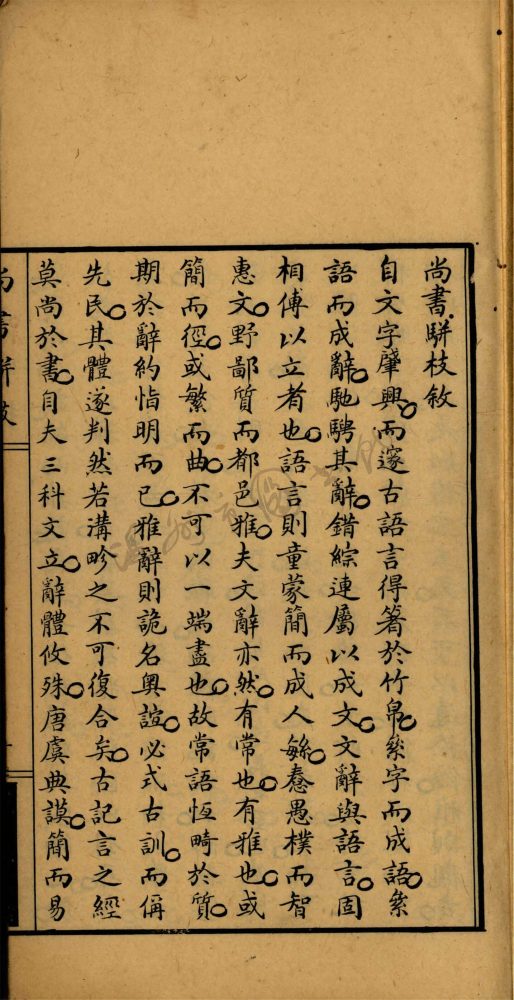 尚書駢枝敘
自文字肇興。而邃古語言得箸於竹帛。絫字而成語。絫
語而成辭。馳騁其辭。錯綜連屬以成文。文辭與語言。固
相傅以立者也。語言則童蒙簡而成人緐。惷愚樸而智
惠文。野鄙質而都邑雅。夫文辭亦然。有常也。有雅也。或
簡而徑。或繁而曲。不可以一端盡也。故常語恆畸於質。
期於辭約恉明而已。雅辭則詭名奧誼。必式古訓。而偁
先民。其體遂判然若溝畛之不可復合矣。古記言之經
莫尚於書。自夫三科文立。辭體攸殊。唐虞典謨。簡而易
尚書駢枝